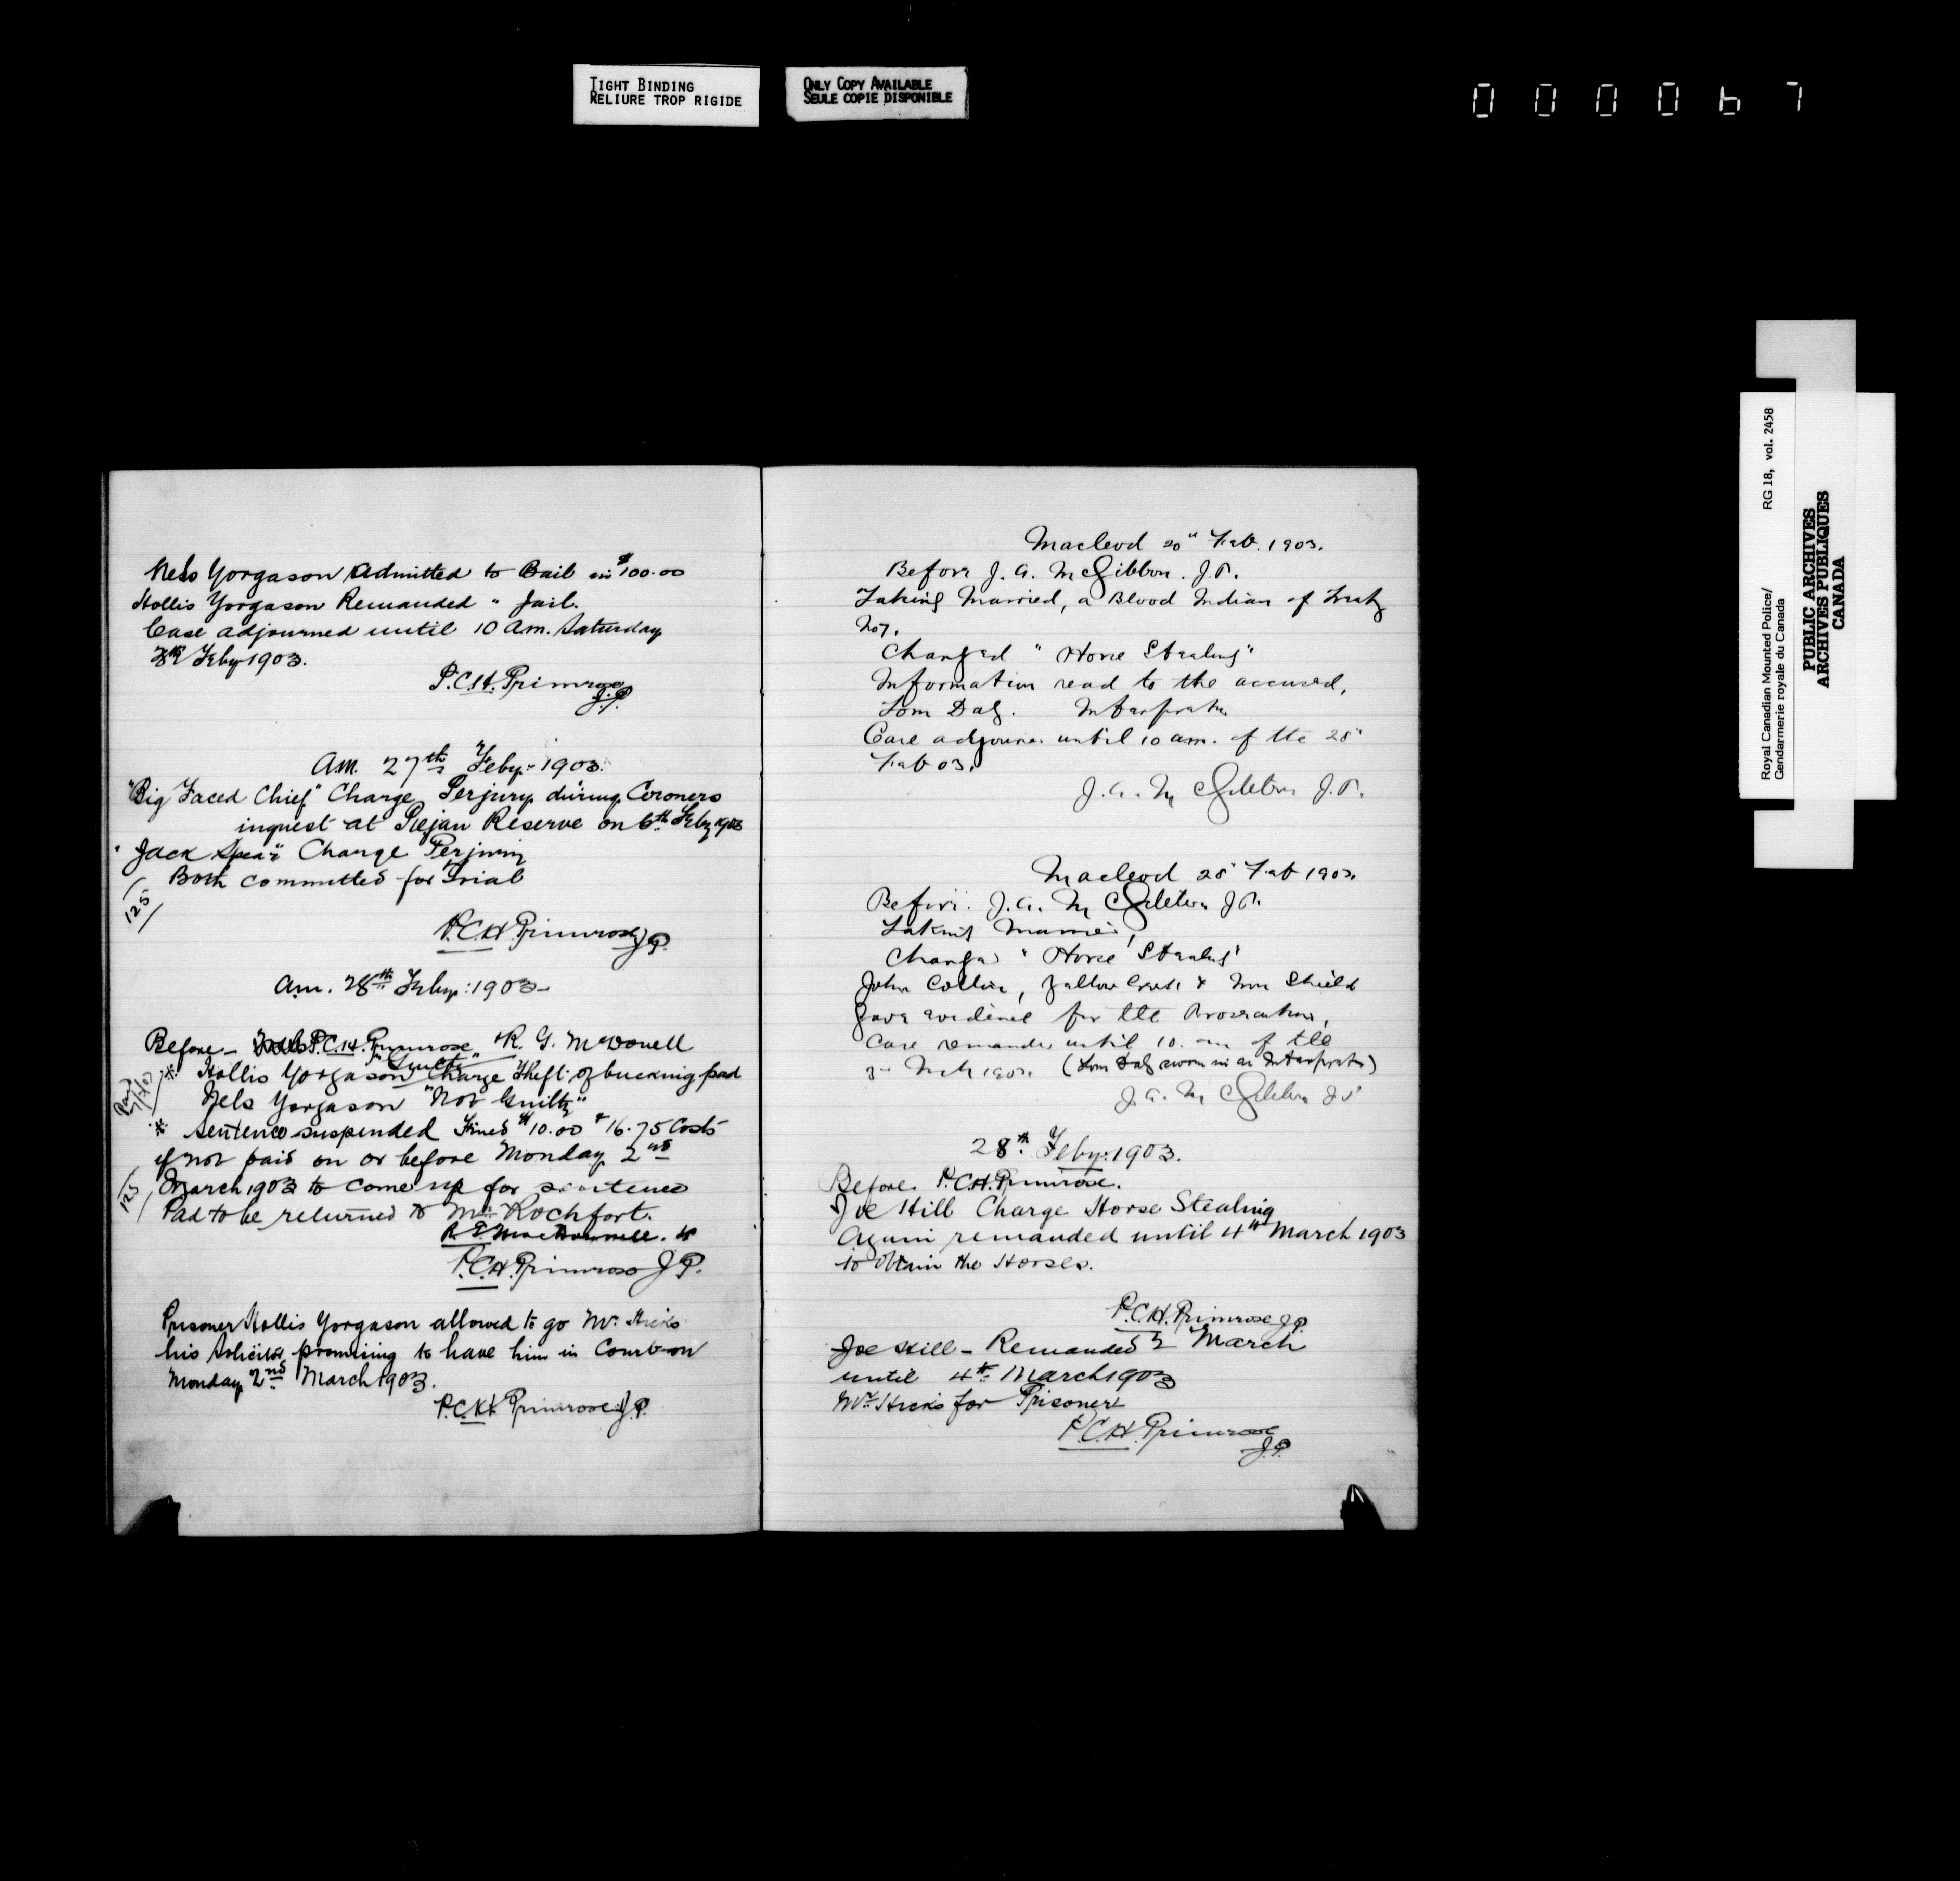 TIGHT BINDING
RELIURE TROP RIGIDE
ONLY COPY AVAILABLE
SEULE COPIE DISPONIBLE
000067
Nels Yorgason Admitted to Bail in $100.00
Hollis Yorgason Remanded " Jail.
Case adjourned until 10 am. Saturday
Feby 1903.
P.C.H. Primrose
J.P.
Am. 27th Feby: 1903.
"Big Faced Chief" Charge Perjury during Coroners
inquest at Piejan Reserve on 6th Feby 1903
"Jack Spear" Charge Perjury
Both committed for Trial
125
P.C.H. Primrose J.P.
Am. 28th Feby: 1903-
Before - P.C.H. Primrose + R. G. McDonell
"Guilty"
* Hollis Yorgason Charge Theft of bucking pad
Nels Yorgason "Not Guilty"
Paid
* Sentence suspended Fined $10.00 + 16.75 Costs
if not paid on or before Monday 2nd
March 1903 to come up for sentence
125
Pad to be returned to Mr. Rochfort.
P.C.H. Primrose J.P.
Prisoner Hollis Yorgason allowed to go Mr. Hicks
his Solicitor promising to have him in Court on
Monday 2nd March 1903.
P.C.H. Primrose J.P.
Macleod 20" Feb. 1903.
Before J. A. McGibbon. J.P.
Taking Married, a Blood Indian of Treaty
No 7.
Charged "Horse Stealing"
Information read to the accused,
Tom Daly. Interpreter
Case adjourned until 10 am. of the 28"
Feb 03.
J. A. McGibbon J.P.
Macleod 28" Feb 1903.
Before J. A. McGibbon J.P.
Taking Married,
Charged "Horse Stealing"
John Collin, & Iron Shield
gave evidence for the Prosecution,
Case remanded until 10. am of the
3" Mch 1903. (Tom Daly sworn in as Interpreter)
J. A. McGibbon J.P.
28th Feby: 1903.
Before P.C.H. Primrose.
Joe Hill Charge Horse Stealing
Again remanded until 4th March 1903
to obtain the Horses.
P.C.H. Primrose J.P.
Joe Hill - Remanded 2 March
until 4th March 1903
Mr. Hicks for Prisoner
P.C.H. Primrose
J.P.
Royal Canadian Mounted Police/ RG 18, vol. 2458
Gendarmerie royale du Canada
PUBLIC ARCHIVES
ARCHIVES PUBLIQUES
CANADA